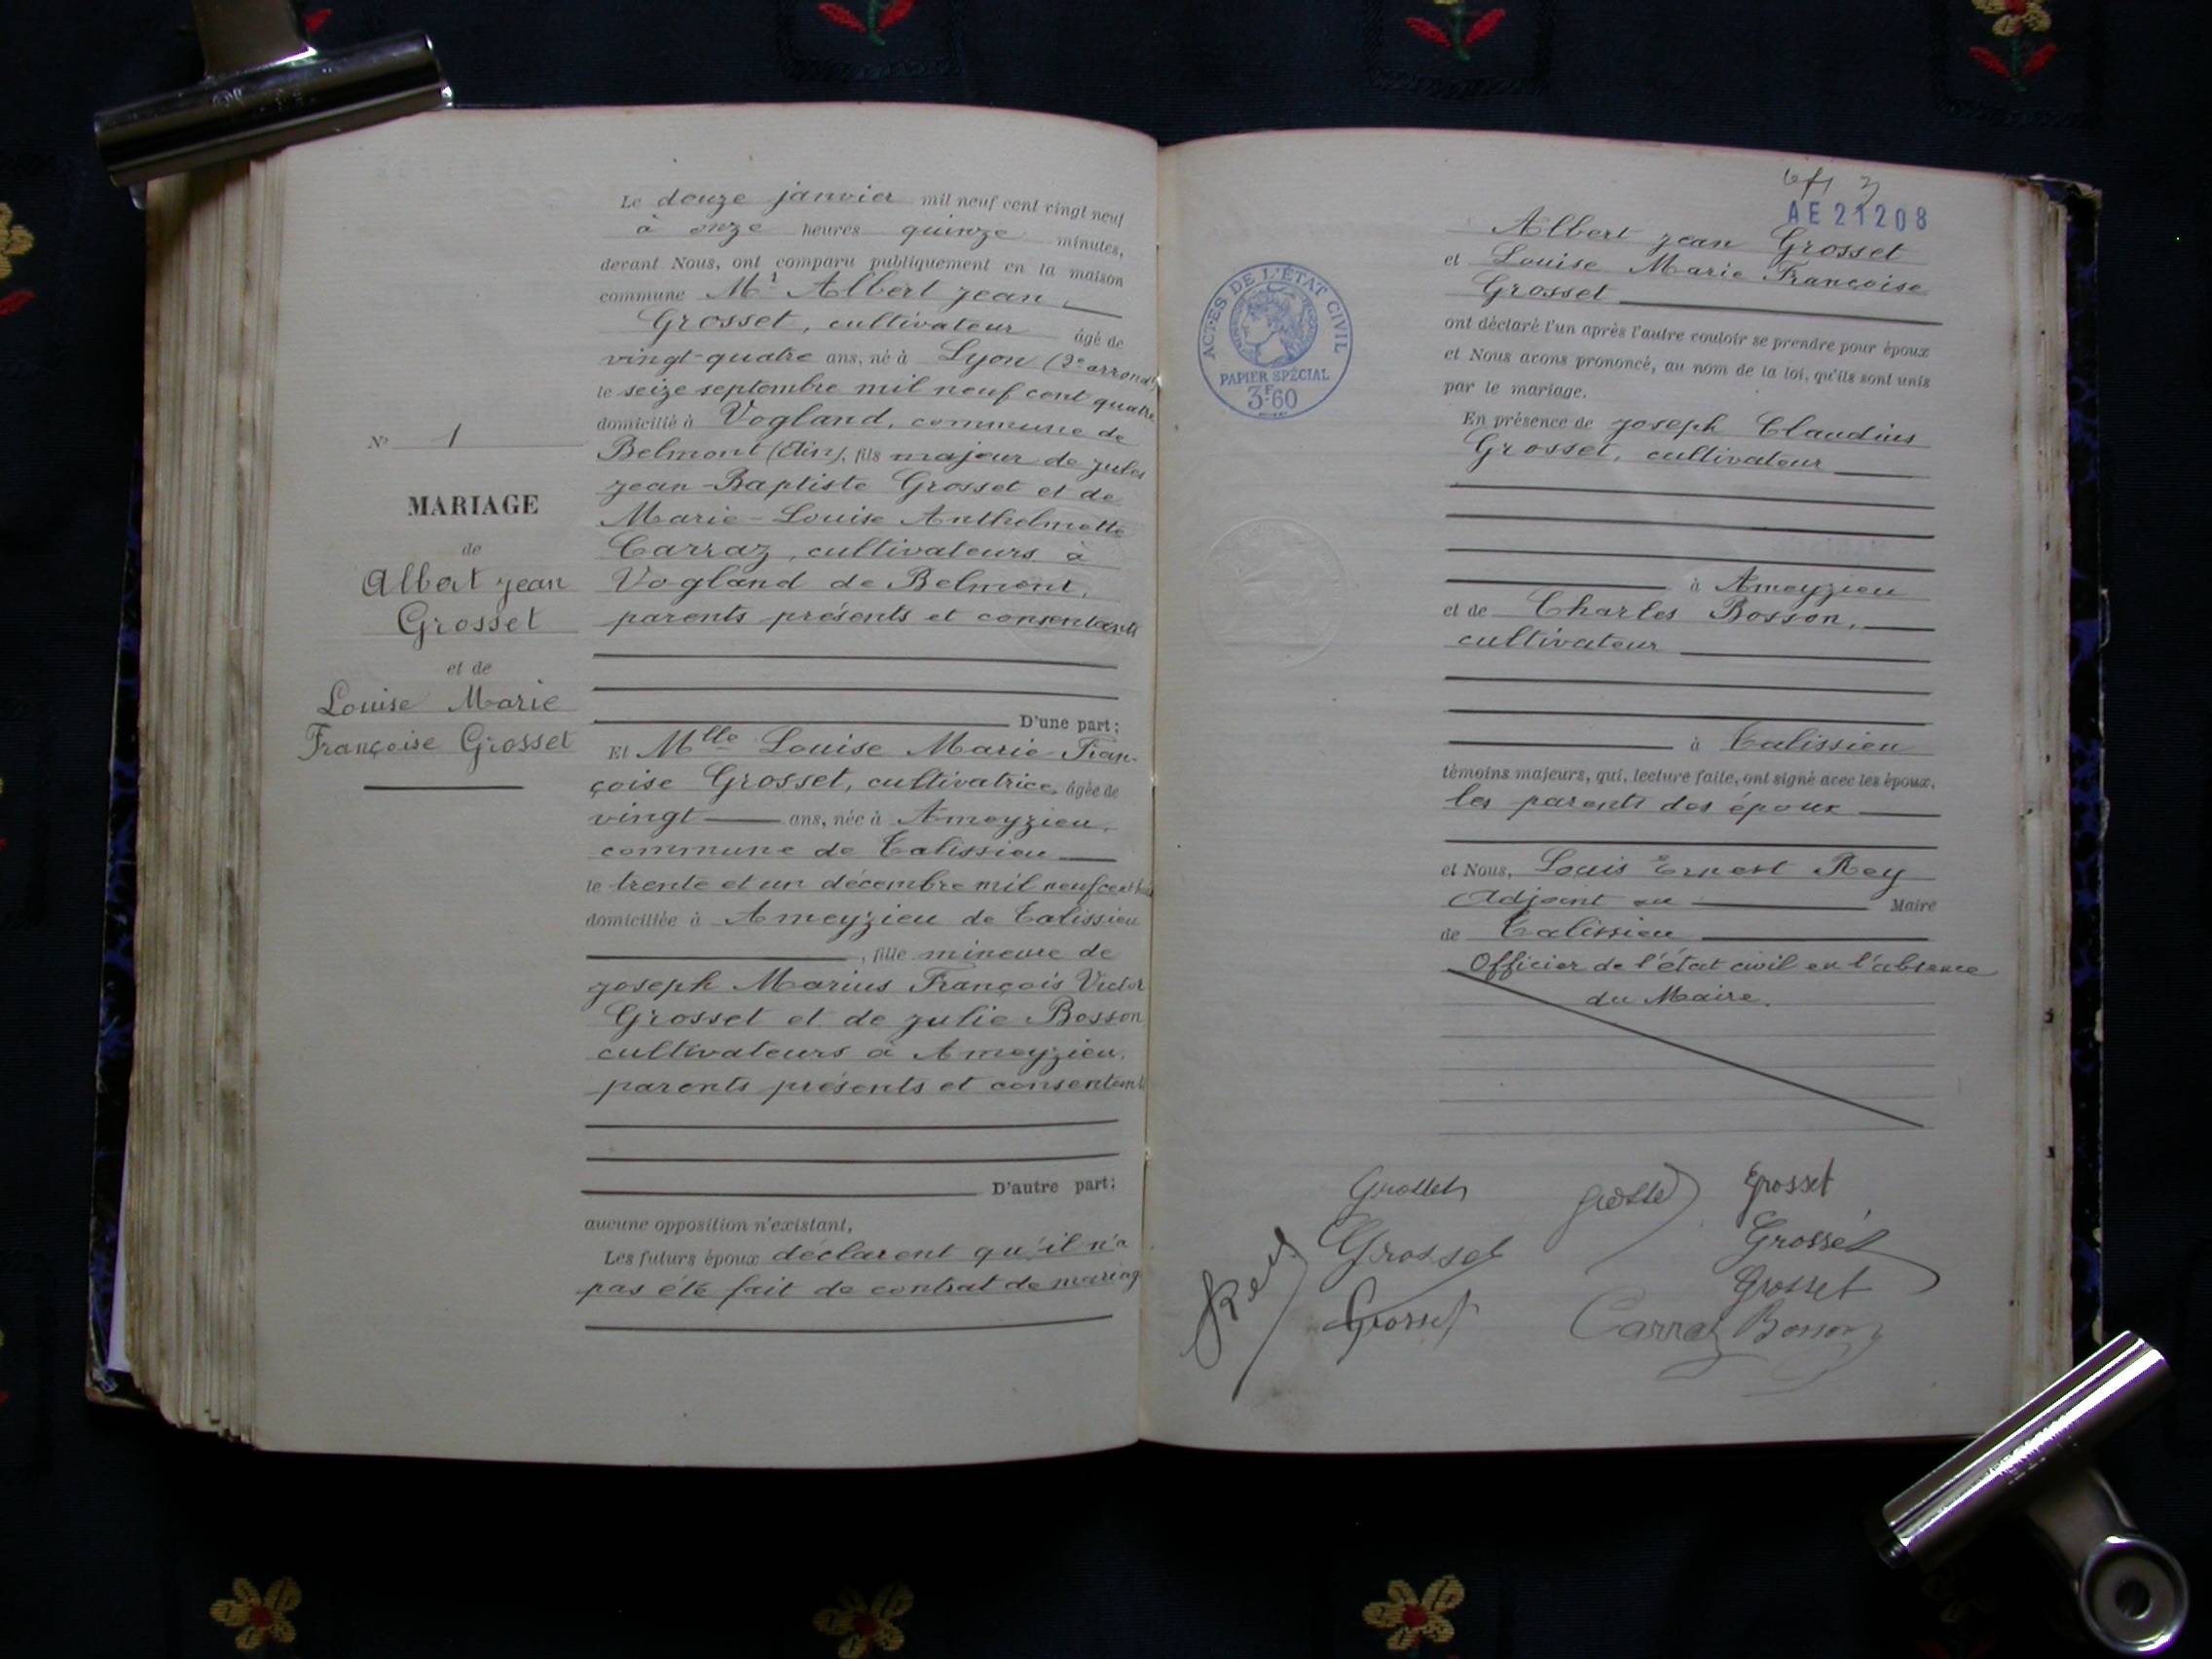 N° 1
MARIAGE
de
Albert jean
Grosset
et de
Louise Marie
Françoise Grosset
Le douze janvier mil neuf cent vingt neuf
à onze heures quinze minutes,
devant Nous, ont comparu publiquement en la maison
commune Mr Albert jean
Grosset, cultivateur âgé de
vingt-quatre ans, né à Lyon (2e arrondt)
le seize septembre mil neuf cent quatre
domicilié à Vogland, commune de
Belmont (Ain), fils majeur de jules
jean-Baptiste Grosset et de
Marie-Louise Anthelmette
Carraz, cultivateurs à
Vogland de Belmont,
parents présents et consentants
D'une part;
Et Mlle Louise Marie Fran-
çoise Grosset, cultivatrice, âgée de
vingt ans, née à Ameyzieu,
commune de Talissieu
le trente et un décembre mil neuf cent huit
domiciliée à Ameyzieu de Talissieu
, fille mineure de
joseph Marius François Victor
Grosset et de julie Bosson
cultivateurs à Ameyzieu,
parents présents et consentants
D'autre part;
aucune opposition n'existant,
Les futurs époux déclarent qu'il n'a
pas été fait de contrat de mariag
AE 21208
ACTES DE L'ÉTAT CIVIL
PAPIER SPÉCIAL
3F60
Albert jean Grosset
et Louise Marie Françoise
Grosset
ont déclaré l'un après l'autre vouloir se prendre pour époux
et Nous avons prononcé, au nom de la loi, qu'ils sont unis
par le mariage.
En présence de joseph Claudius
Grosset, cultivateur
à Ameyzieu
et de Charles Bosson,
cultivateur
à Talissieu
témoins majeurs, qui, lecture faite, ont signé avec les époux,
les parents des époux
et Nous, Louis Ernest Rey
Adjoint au Maire
de Talissieu
Officier de l'état civil en l'absence
du Maire.
Grosset Grosset Grosset
Grosset Grosset
Rey Grosset Grosset
Carraz Bosson